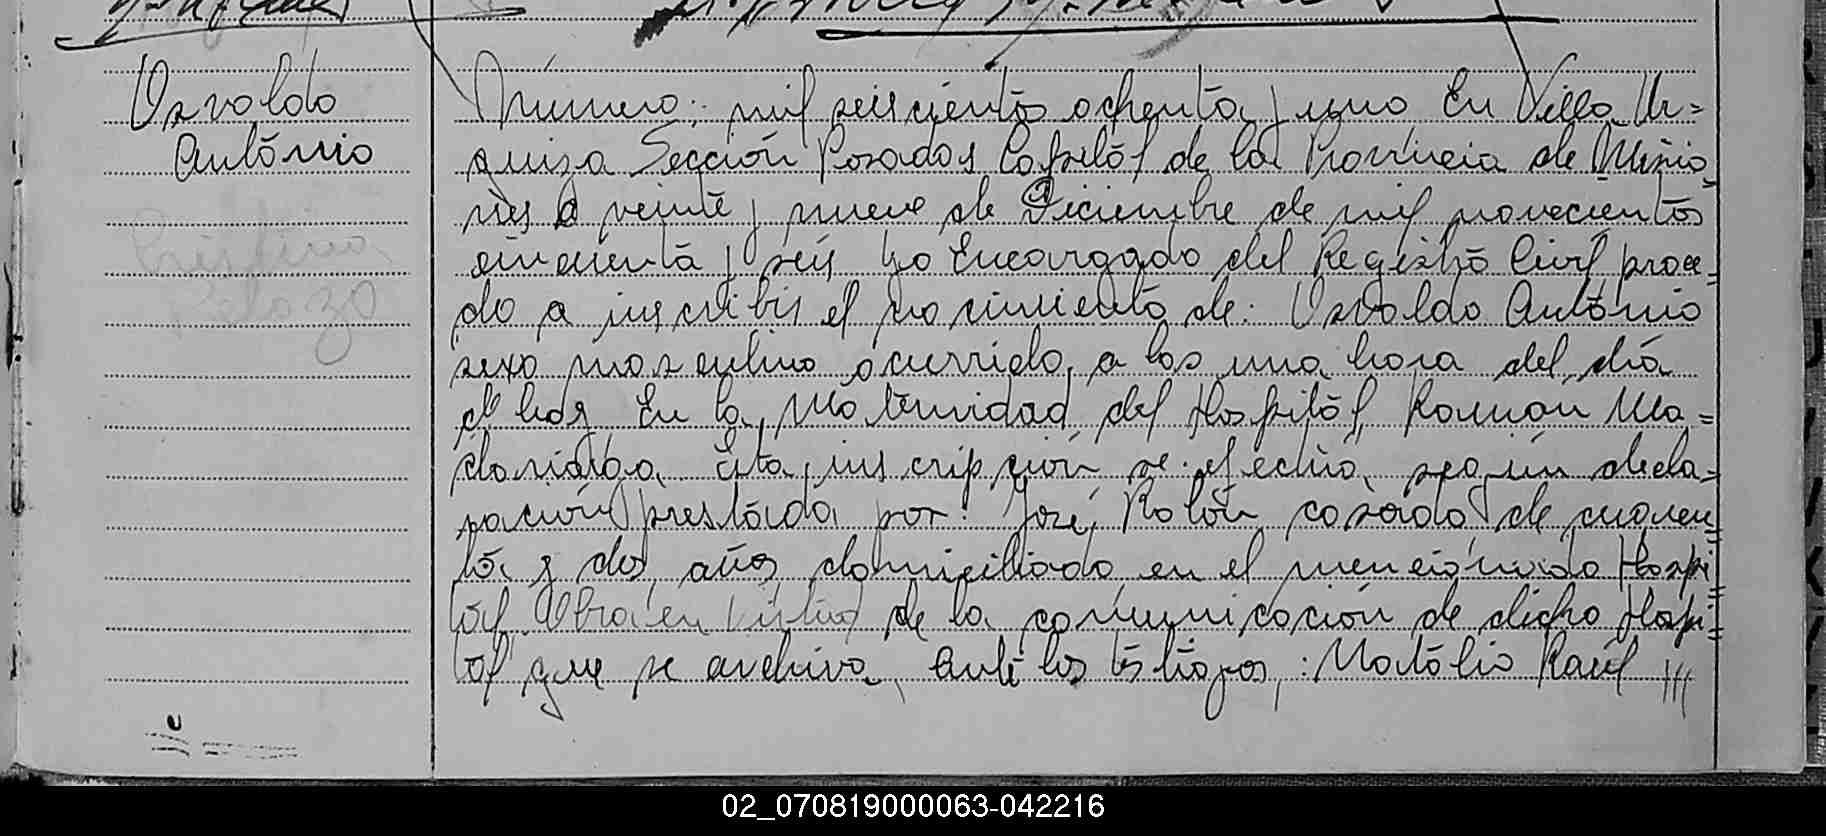 Osvaldo
Antonio
Cristina
Peloza
Número: mil seiscientos ochenta y uno En Villa Ur=
quiza Sección Posadas Capital de la Provincia de Misio=
nes a veinte y nueve de Diciembre de mil novecientos
cincuenta y seis Yo Encargado del Registro Civil proce=
do a inscribir el nacimiento de: Osvaldo Antonio
sexo masculino ocurrido a las una hora del día
de hoy En la Maternidad del Hospital Ramon Ma=
dariaga Esta inscripción se efectúa según decla=
ración prestada por: José Rolón casado de cuaren=
ta y dos años domiciliado en el mencionado Hospi=
tal Obra en virtud de la comunicación de dicho Hospi=
tal que se archiva, ante los testigos: Natalio Raúl ///
02_070819000063-042216